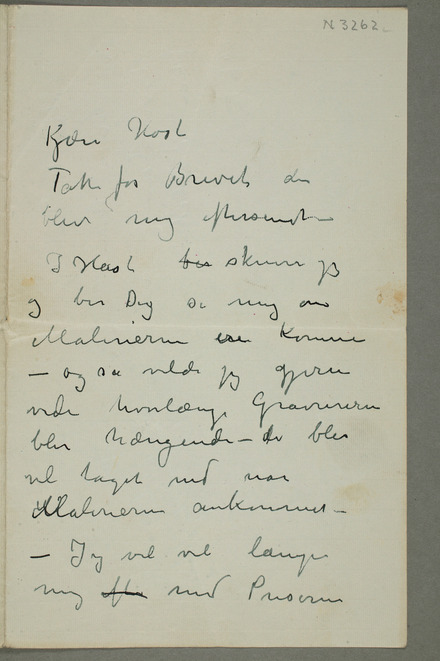 N 3262
Kjære Host
Tak for Brevet der
blev mig eftersendt –
I Hast ber skriver jeg
og ber Dig si mig om
Malerierne ere komne
– og så vilde jeg gjerne
vide hvorlænge Gravurerne
blev hængende – de blev
vel taget ned når
Malerierne ankommet –
– Jeg vil vel længe
mig efter med Priserne